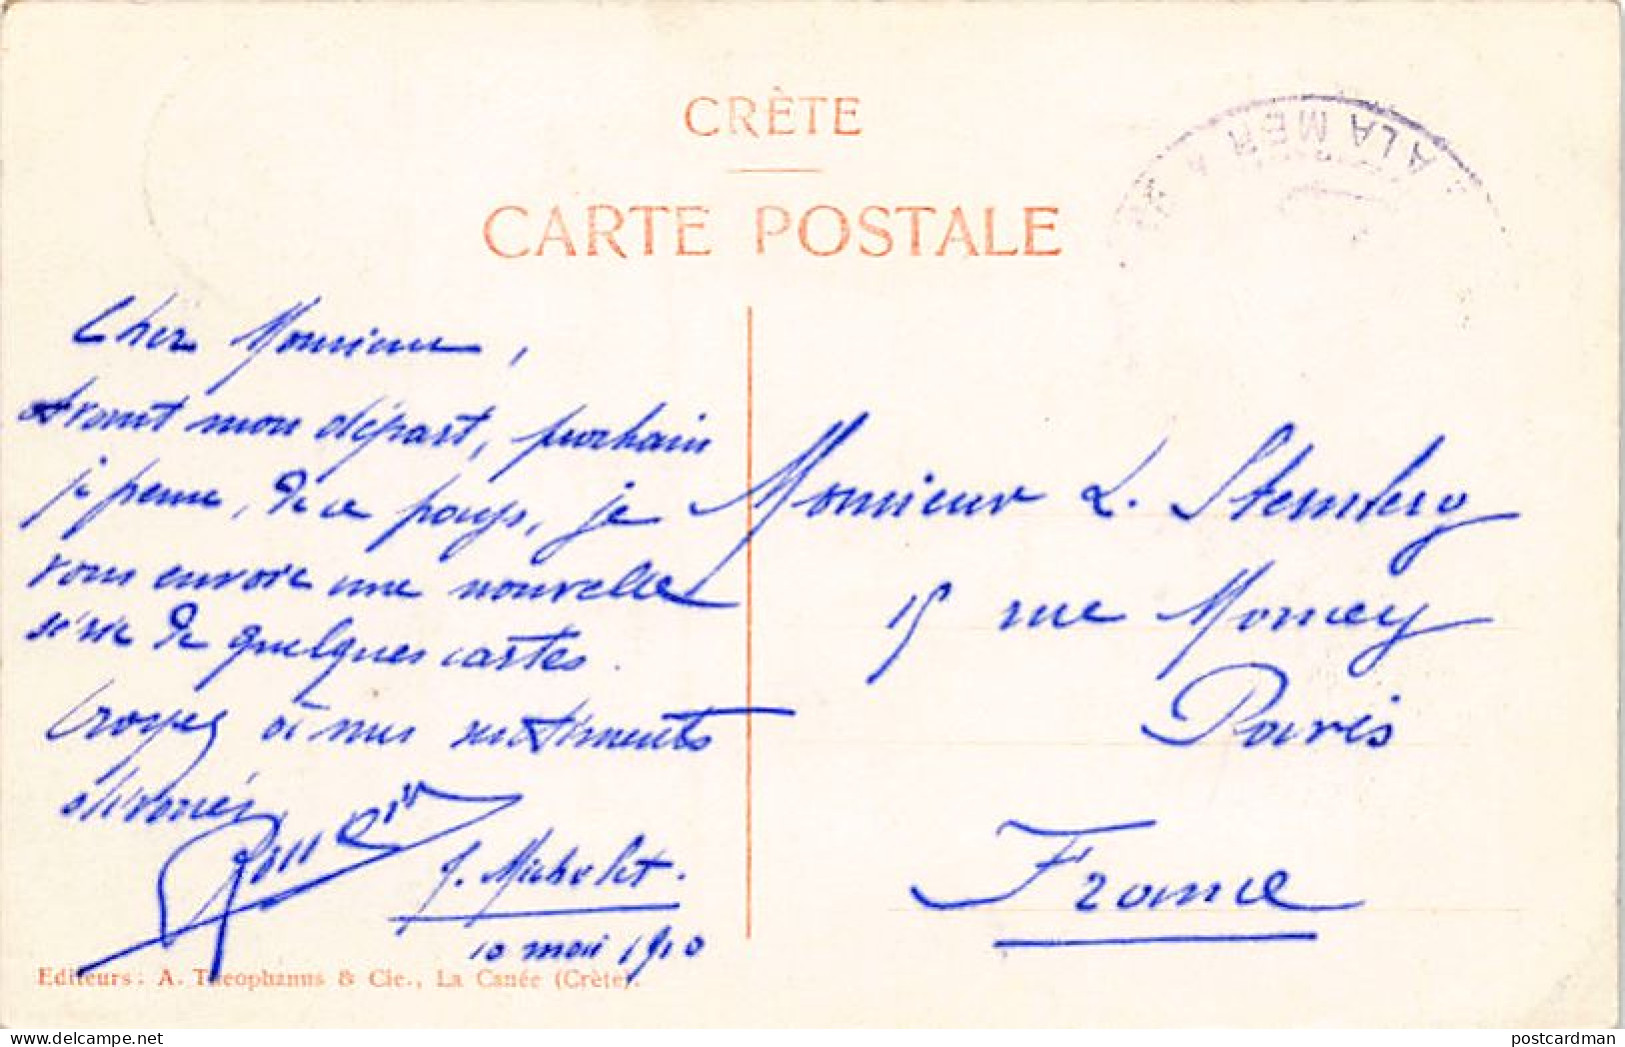 CRÈTE
CARTE POSTALE
A LA MER
Cher Monsieur,
Avant mon départ, prochain
je pense, de ce pays, je
vous envoie une nouvelle
série de quelques cartes.
Croyez à mes sentiments
dévoués
J. Michelet.
10 mai 1910
Monsieur L. Sternberg
15 rue Moncey
Paris
France
Editeurs: A. Theophanus & Cie., La Canée (Crète).
delcampe.net
postcardman